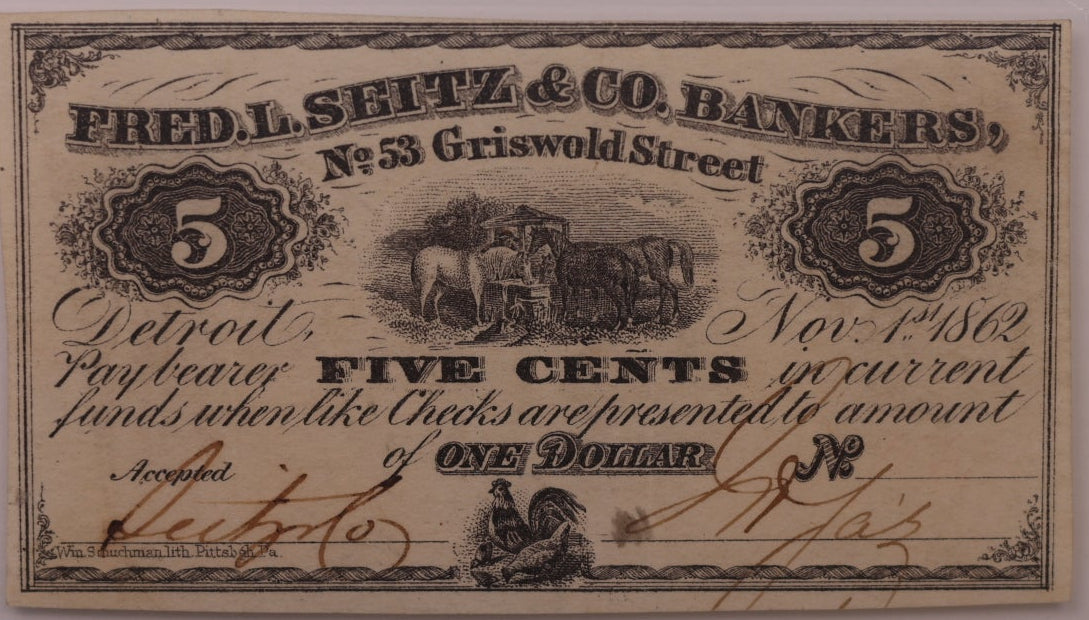 FRED. L. SEITZ & CO. BANKERS,
No. 53 Griswold Street
5 5
Detroit, Nov. 1st 1862
Pay bearer FIVE CENTS in current
funds when like Checks are presented to amount
of ONE DOLLAR No
Accepted
Seitz & Co
Wm. Schuchman lith. Pittsbgh Pa.